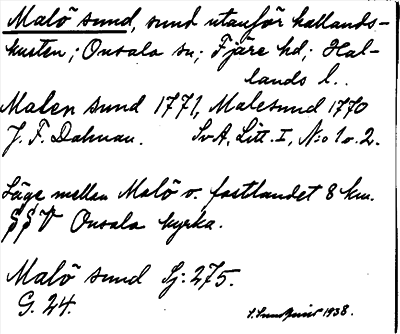 Malö sund, sund utanför hallands-
kusten; Onsala sn; Fjäre hd; Hal-
lands l..
Malen sund 1771, Malesund 1770
J. F. Dalman. SvA, Litt. I, N:o 1 o. 2.
Läge mellan Malö o. fastlandet 8 km.
SSV Onsala kyrka.
Malö sund Sj: 275.
G. 24.
1938.